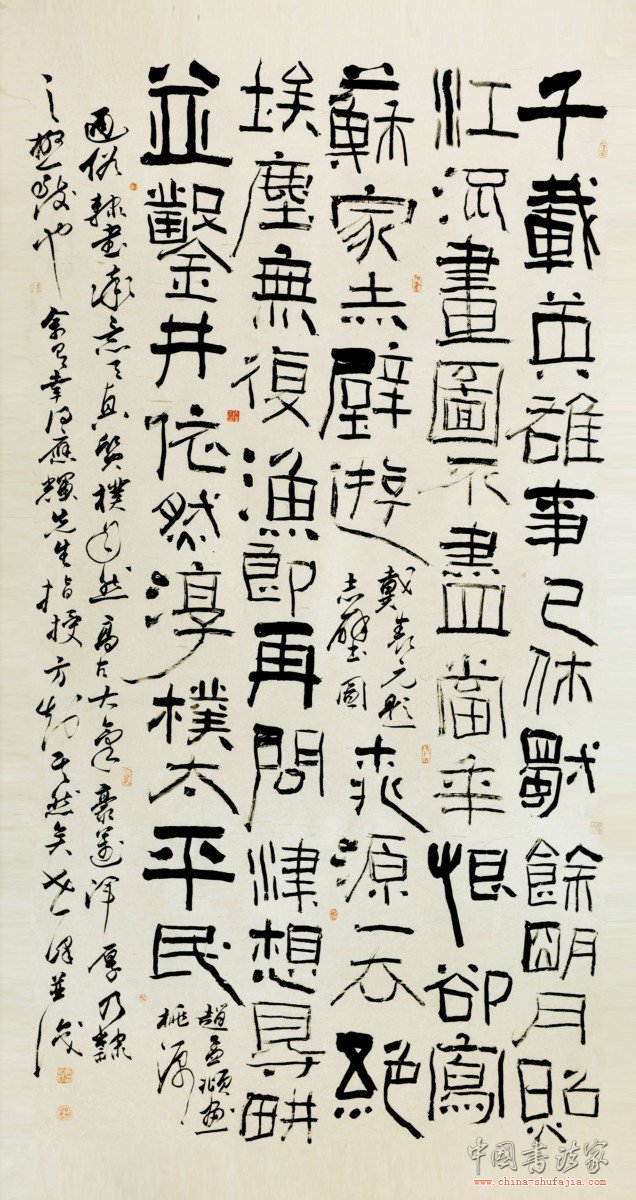 千載英雄事已休獨餘明月照
江流畫圖不盡當年恨卻寫
蘇家赤壁遊
戴表元題
赤壁圖
桃源一去絕
埃塵無復漁郎再問津想見畊
並鑿井依然淳樸太平民
趙孟頫
桃源
通俗隸書 真質樸自然高古大氣豪邁渾厚乃隸
之極致也 余有幸得應輝先生指授方知其然矣 並識
中国书法家
www.china-shufajia.com